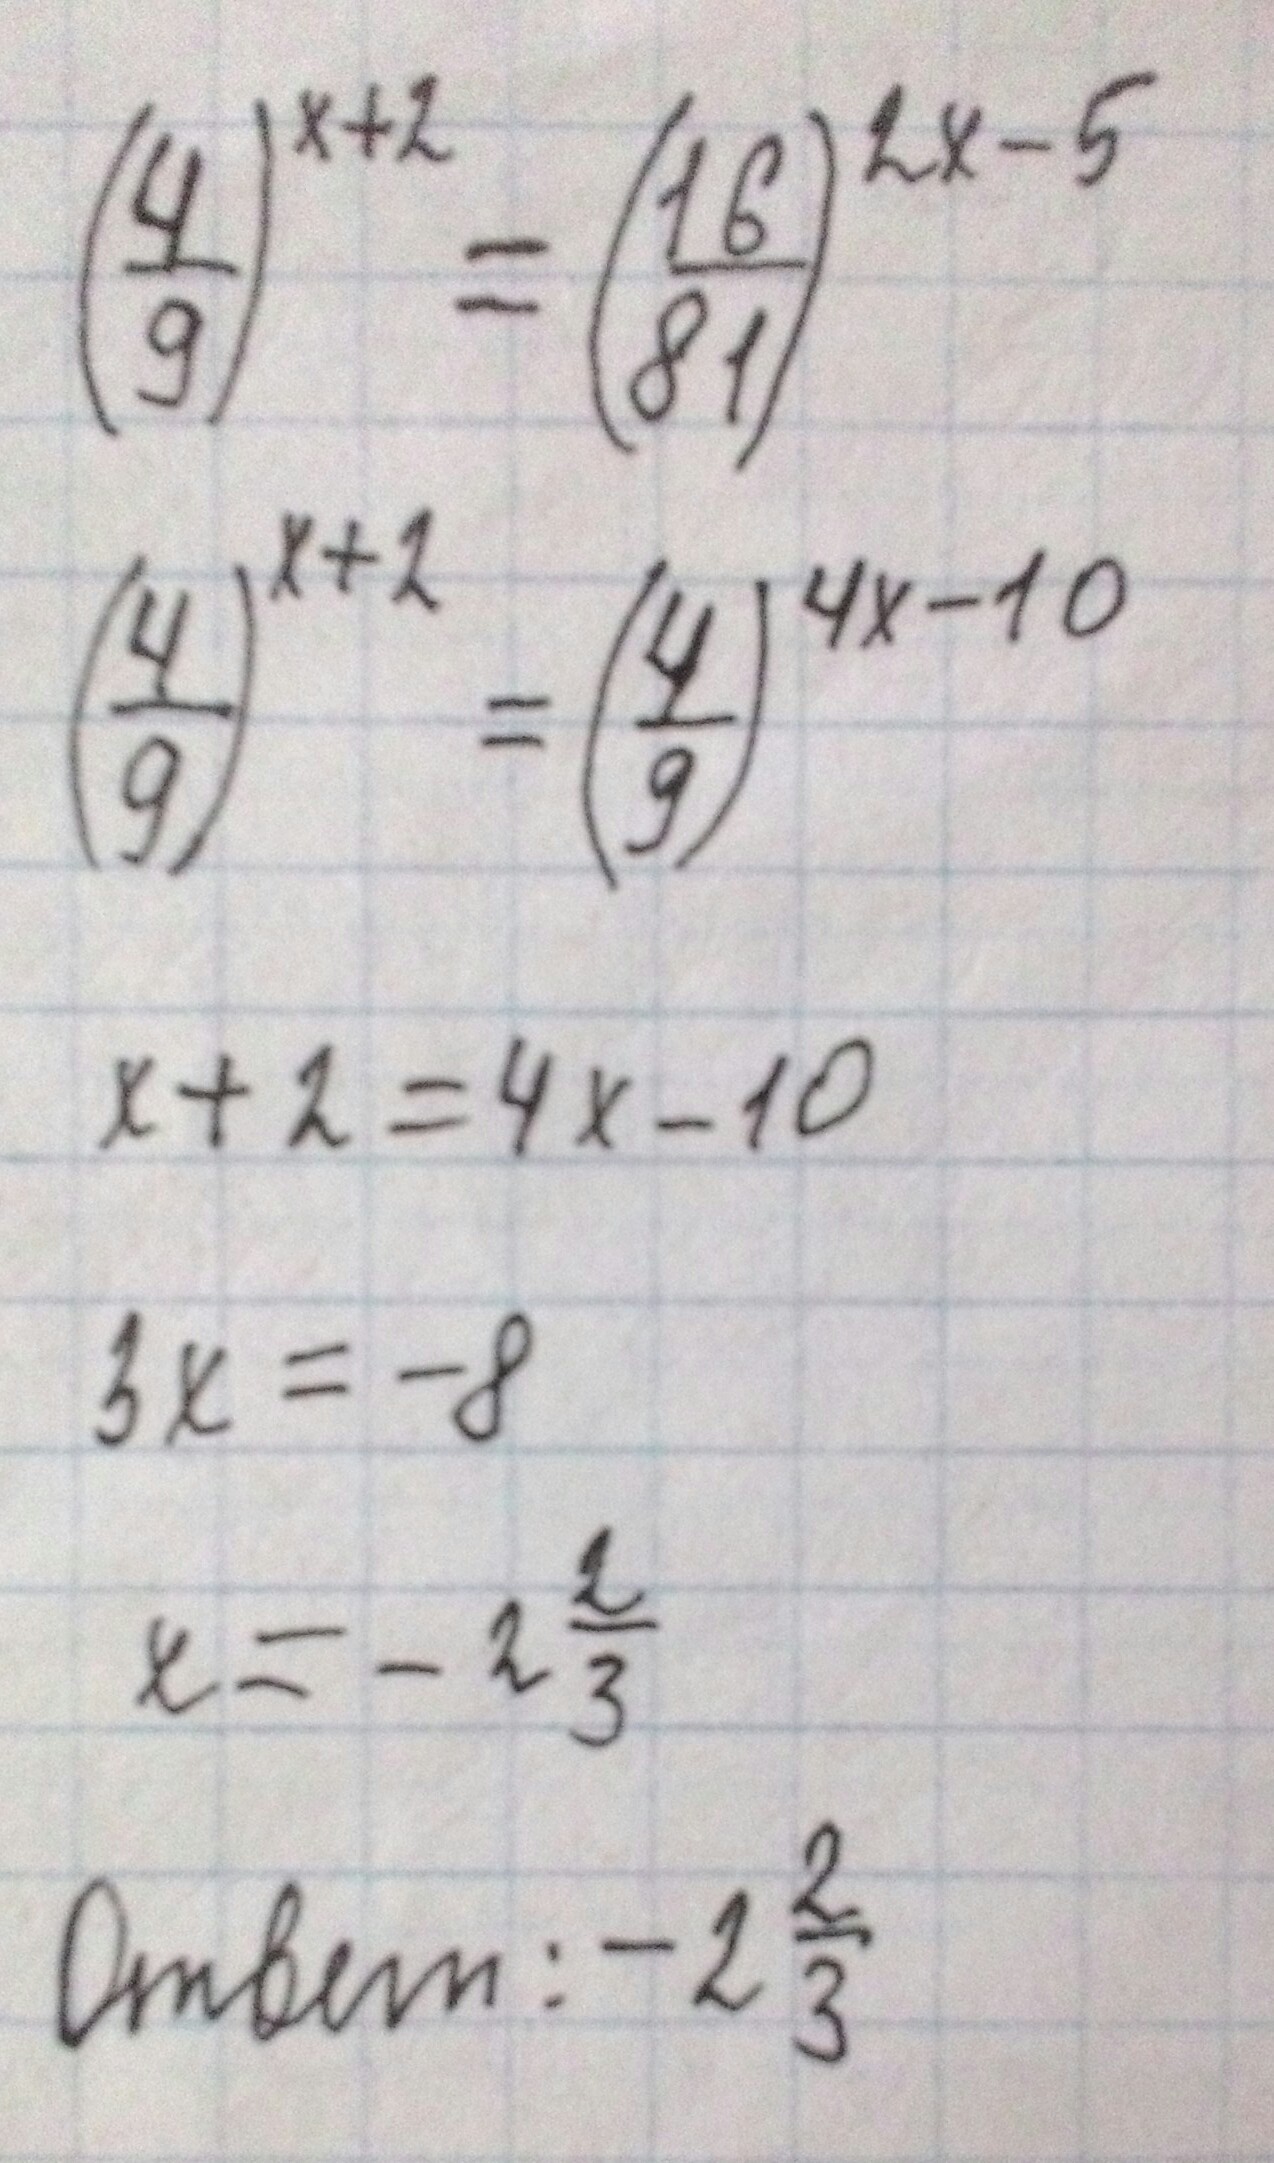 (4/9)^(x+2) = (16/81)^(2x-5)
(4/9)^(x+2) = (4/9)^(4x-10)
x + 2 = 4x - 10
3x = -8
x = -2 2/3
Ответ: -2 2/3